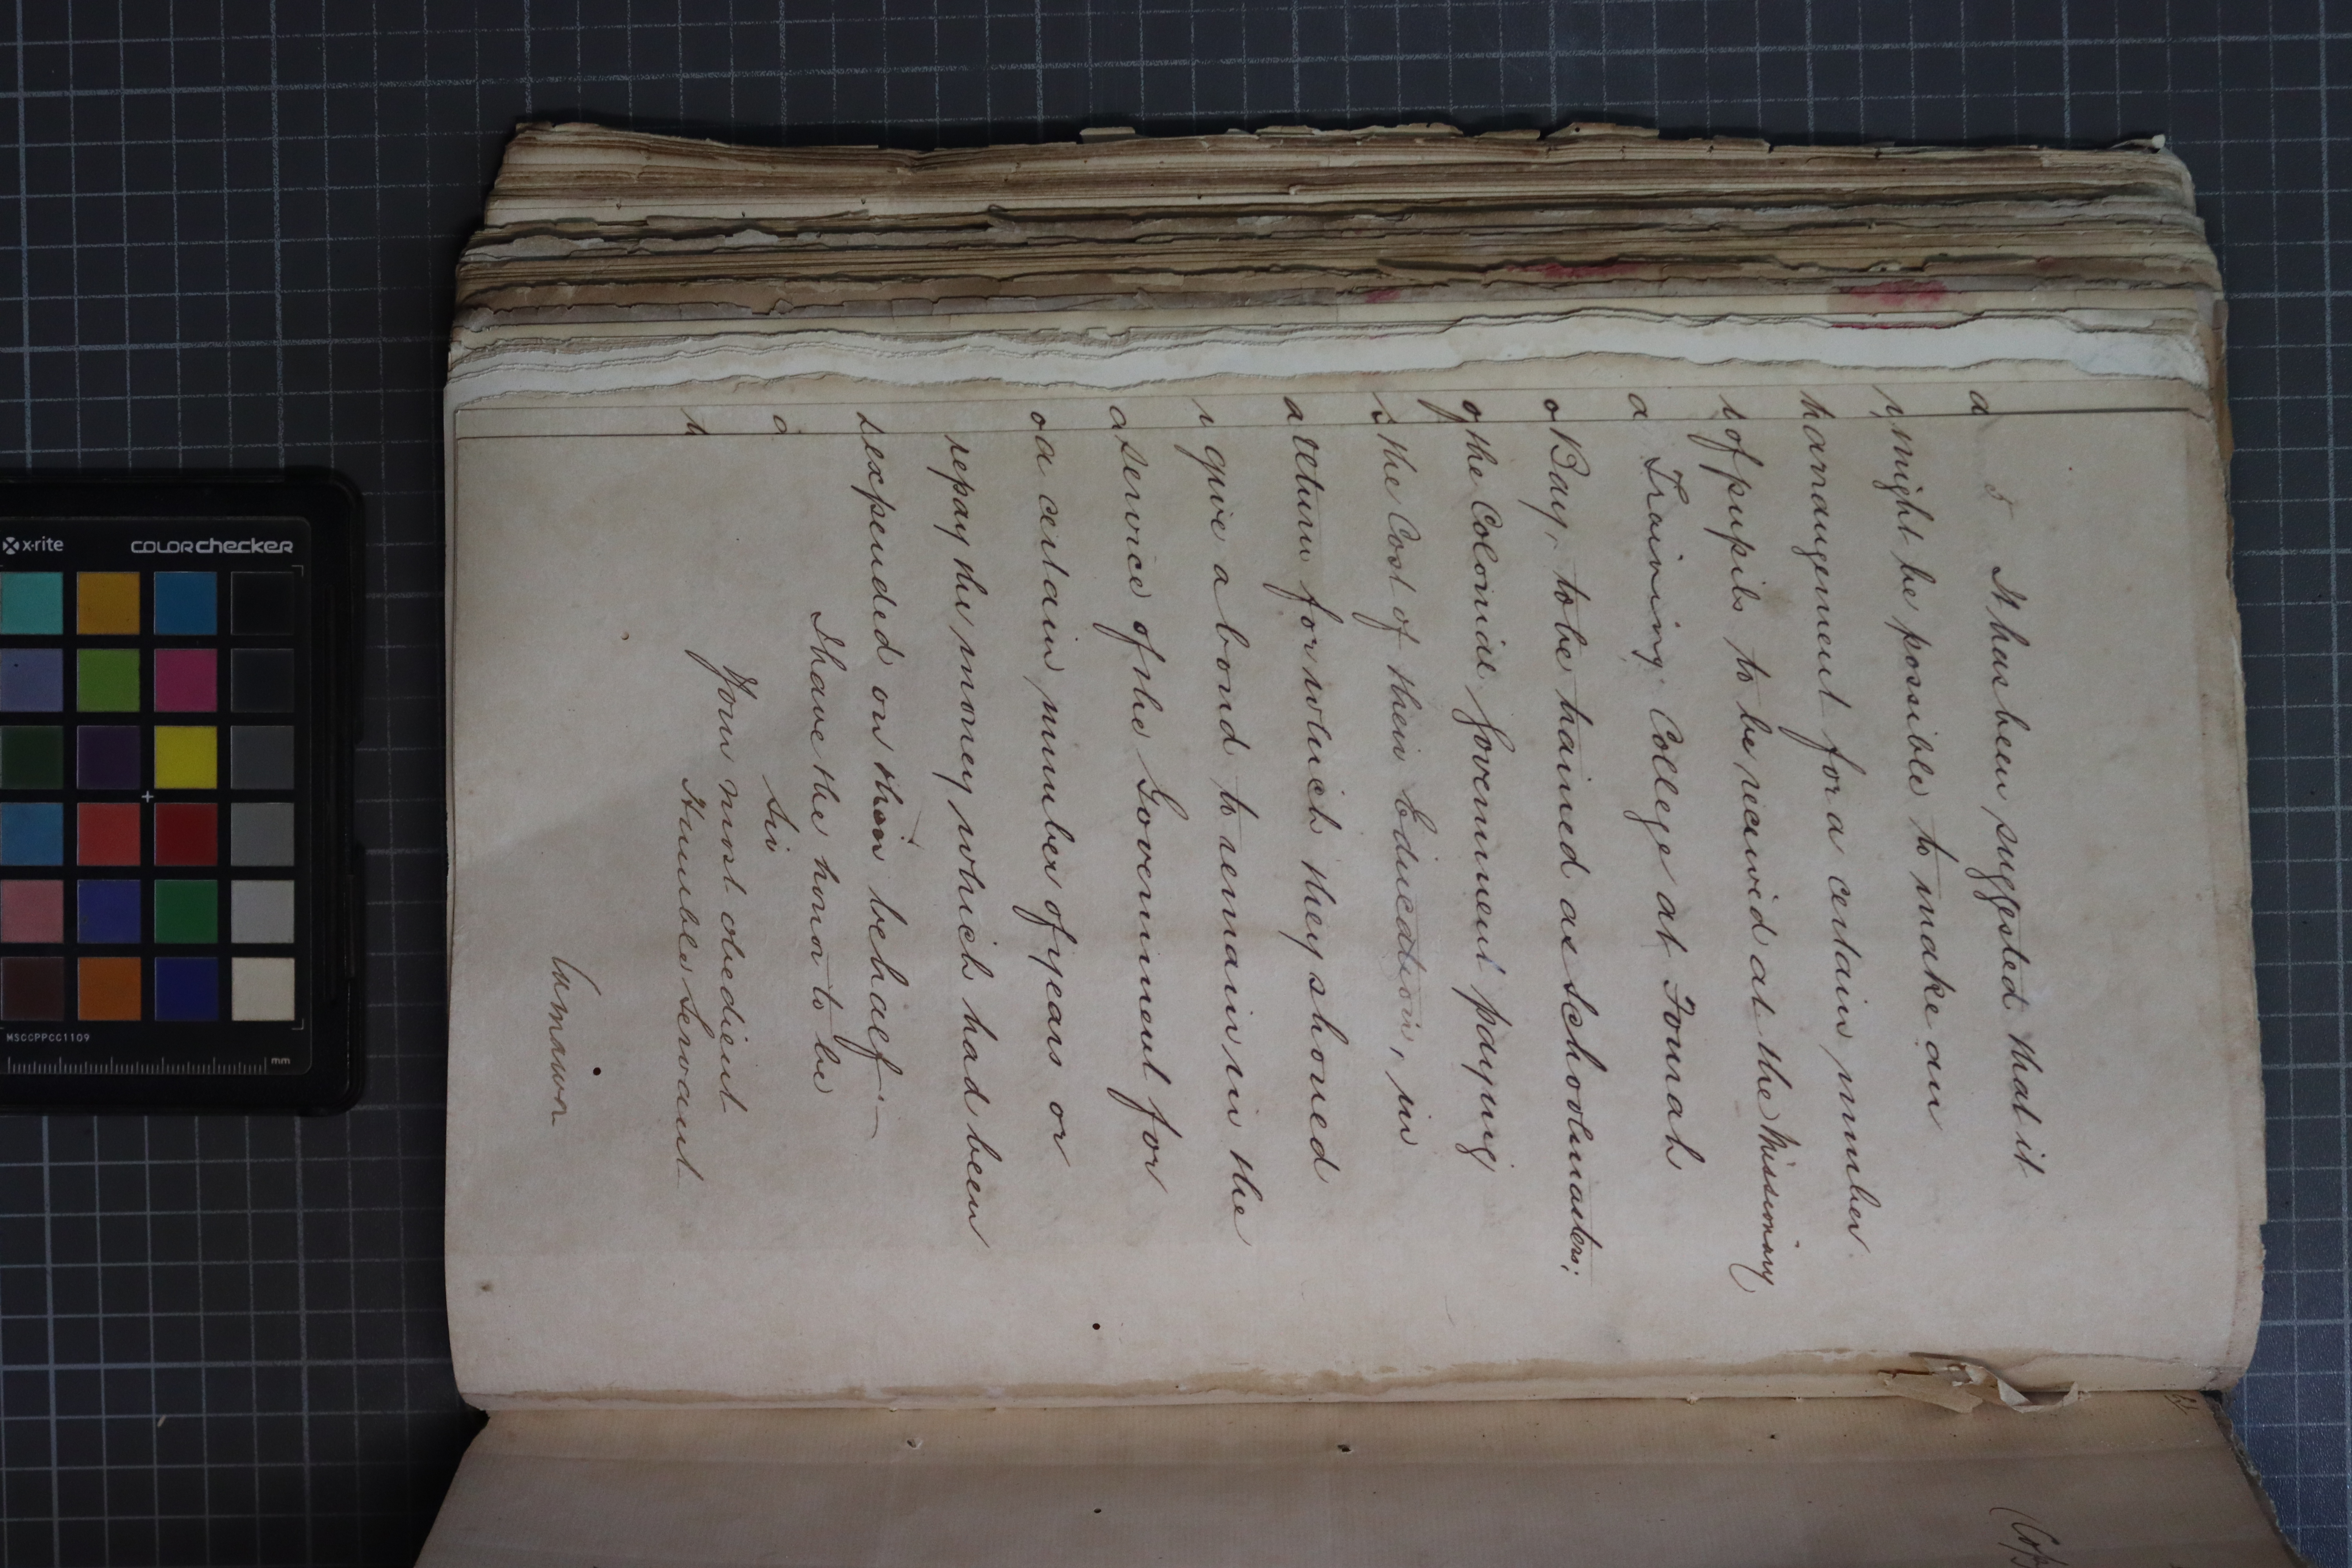 5 It has been suggested that it
might be possible to make an
arrangement for a certain number
of pupils to be received at the Missionary
Training College at Fourah
Bay, to be trained as Schoolmasters;
the Colonial Government paying
the Cost of their Education, in
return for which they should
give a bond to remain in the
service of the Government for
a certain number of years or
repay the money which had been
expended on their behalf —
I have the honor to be
Sir
Your most obedient
Humble Servant
Carnarvon
x-rite
colorchecker
MSCCPPCC1109
mm